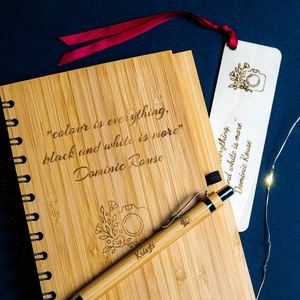 "colour is everything,
black and white is more"
Dominic Rouse
everything,
and white is more"
Dominic Rouse
Kristy